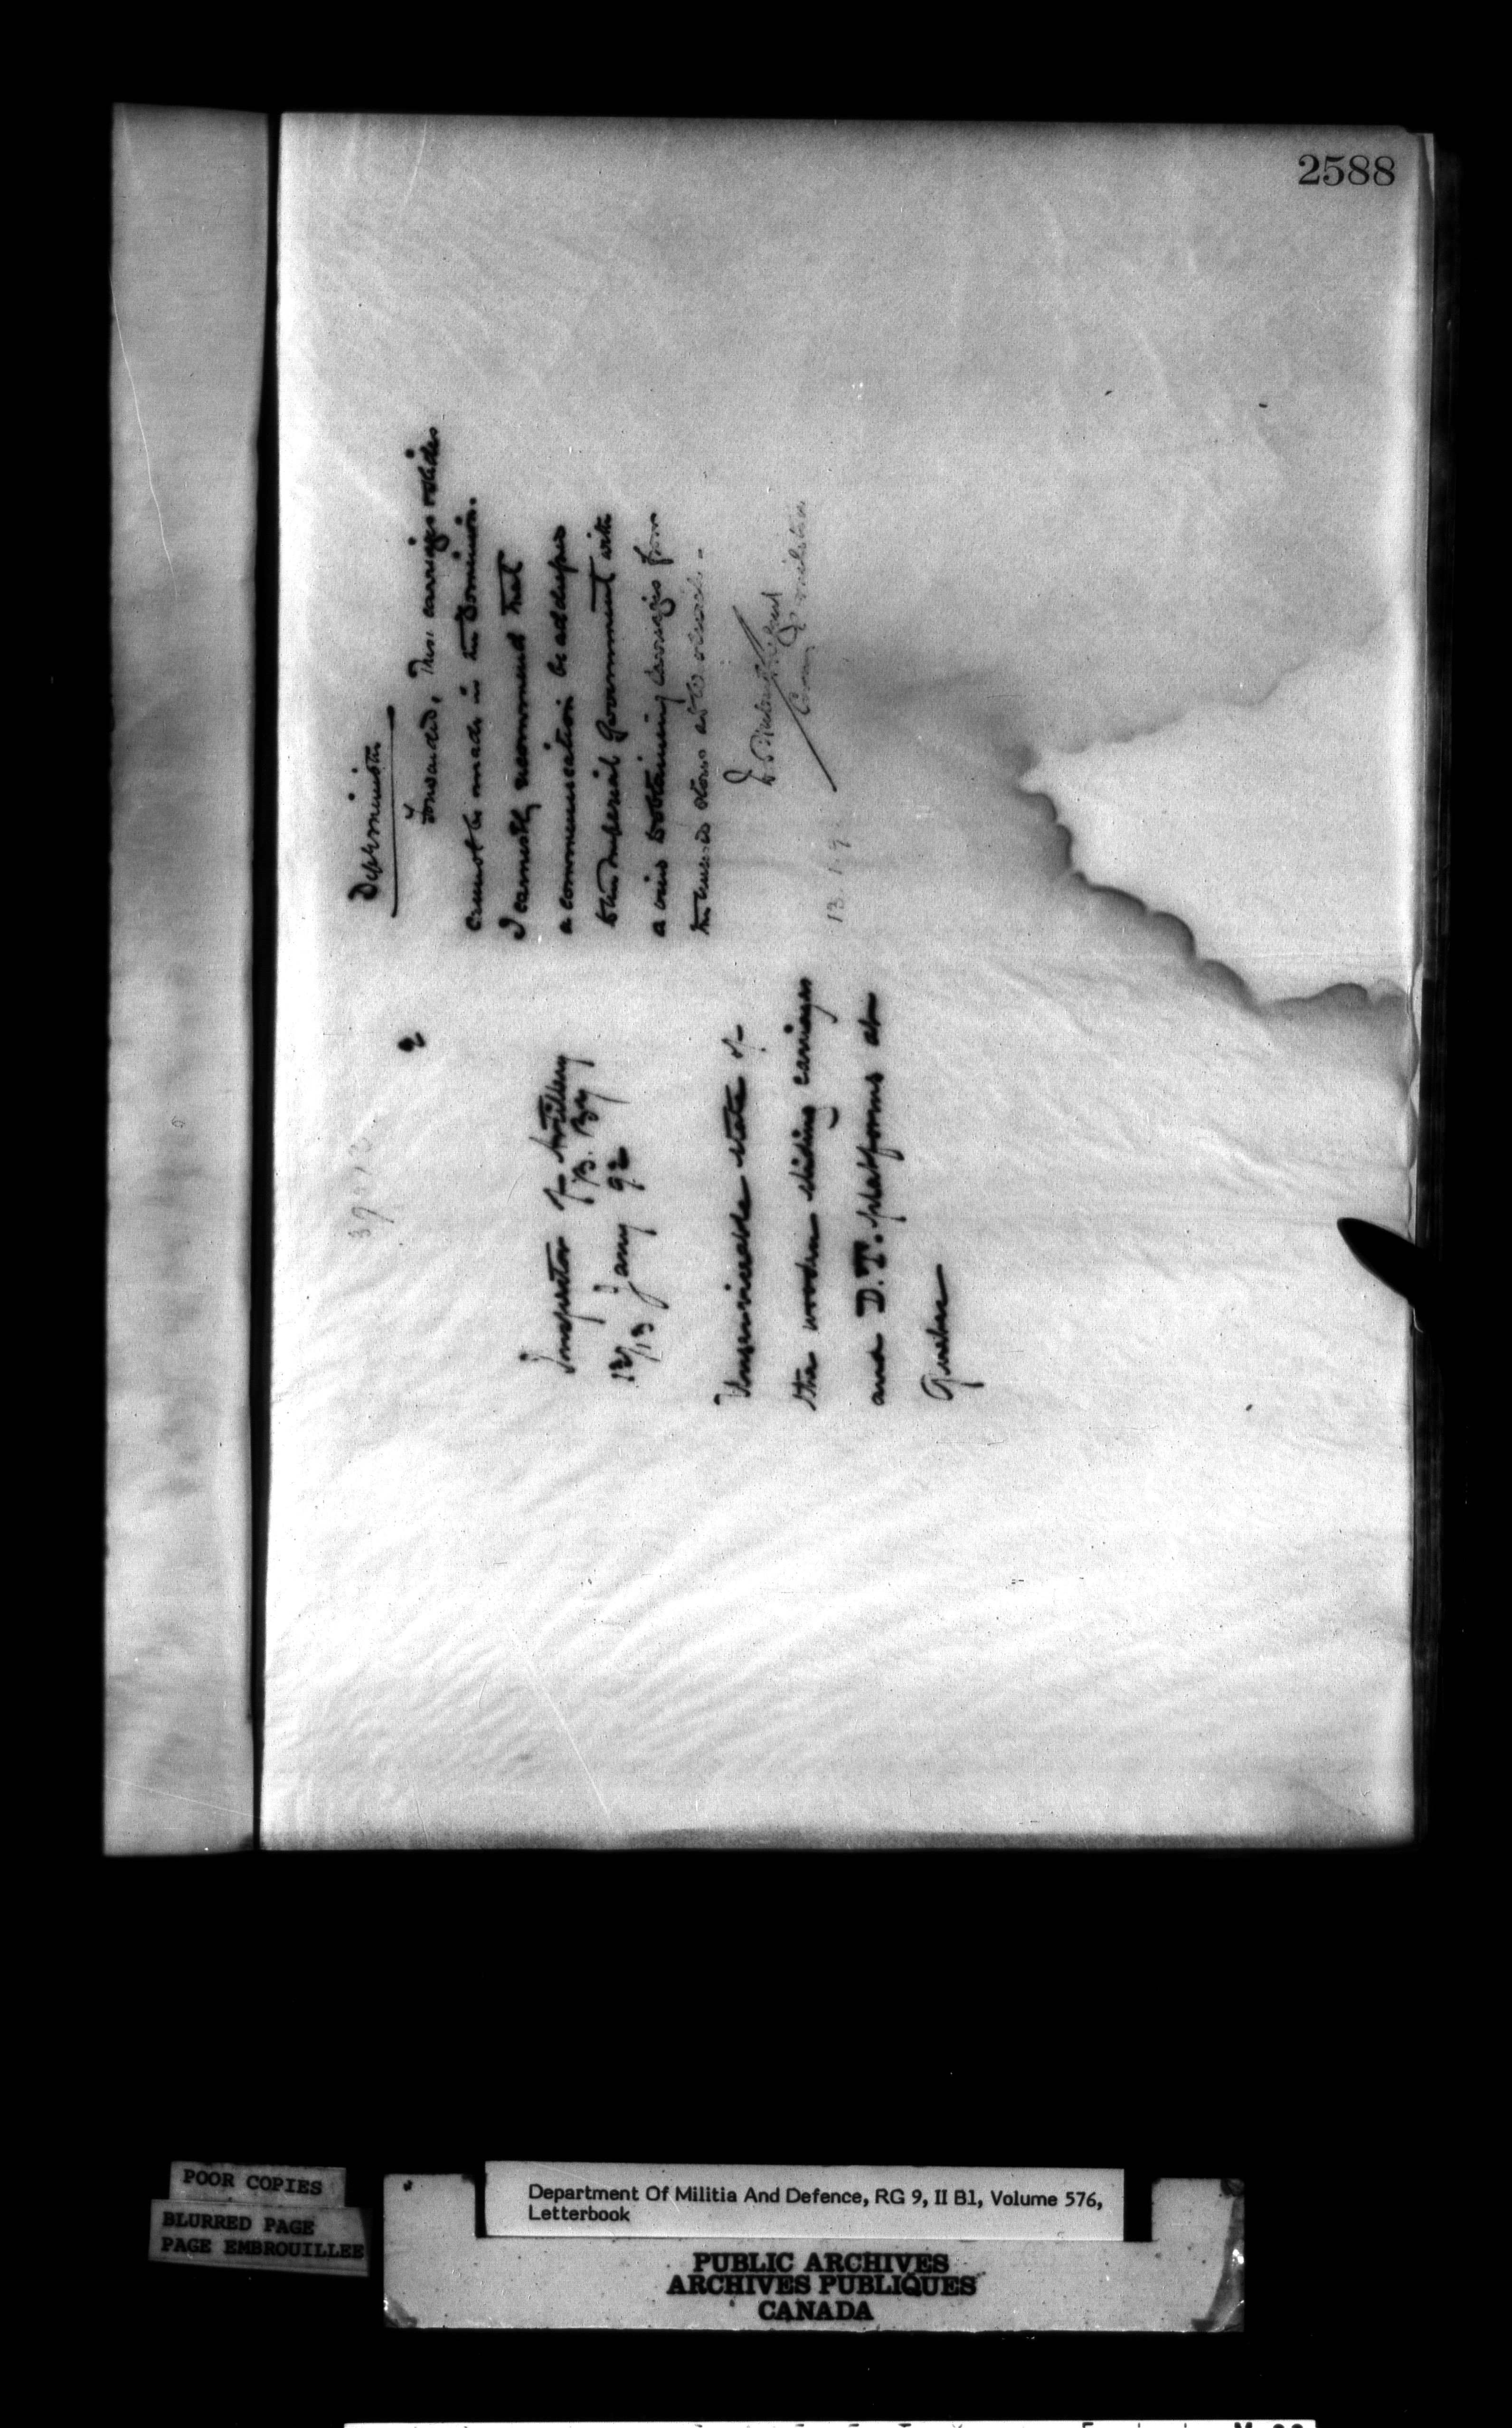 2588
Inspector of Artillery
B. By
12/13 Jany 92
Unserviceable state of
the wooden sliding carriages
and D.T. platforms at
Quebec
Dep. Minister
Forwarded, These carriages & slides
cannot be made in the Dominion.
I earnestly recommend that
a communication be addressed
to the Imperial Government with
a view to obtaining carriages from
the stores at
13.1.9
POOR COPIES
BLURRED PAGE
PAGE EMBROUILLEE
Department Of Militia And Defence, RG 9, II B1, Volume 576,
Letterbook
PUBLIC ARCHIVES
ARCHIVES PUBLIQUES
CANADA